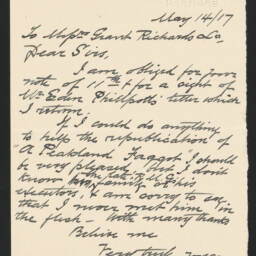 May 14/17
To Messrs Grant Richards Ld,
Dear Sirs,
I am obliged for your
note of 11th & for a sight of
Mr Eden Phillpotts' letter which
I return.
If I could do anything
to help the republication of
"A Peakland Faggot" I should
be very pleased, but I don't
know the late R. M. G.'s
family or his
executors, & am sorry to say
that I never met him in
the flesh. With many thanks
Believe me
Very truly yours